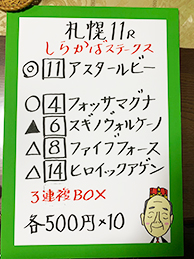 札幌11R
しらかばステークス
◎11アスタールビー
○4フォッサマグナ
▲6スギノヴォルケーノ
△8ファイブフォース
△14ヒロイックアゲン
3連複BOX
各500円×10